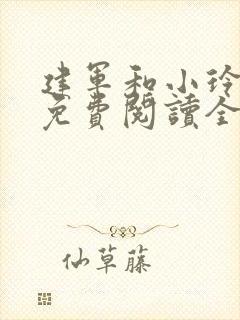 建軍和小玲
免費閱讀全
仙草藤